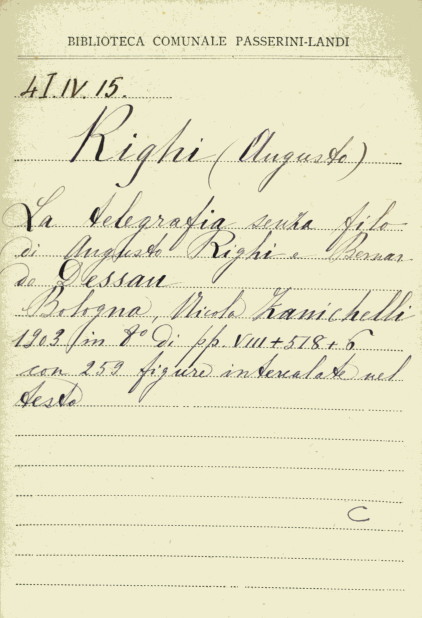 BIBLIOTECA COMUNALE PASSERINI-LANDI
4I.IV.15.
Righi (Augusto)
La telegrafia senza filo
di Augusto Righi e Bernar
do Dessau
Bologna, Nicola Zanichelli
1903 in 8° di pp. VIII+518+6
con 259 figure intercalate nel
testo
C